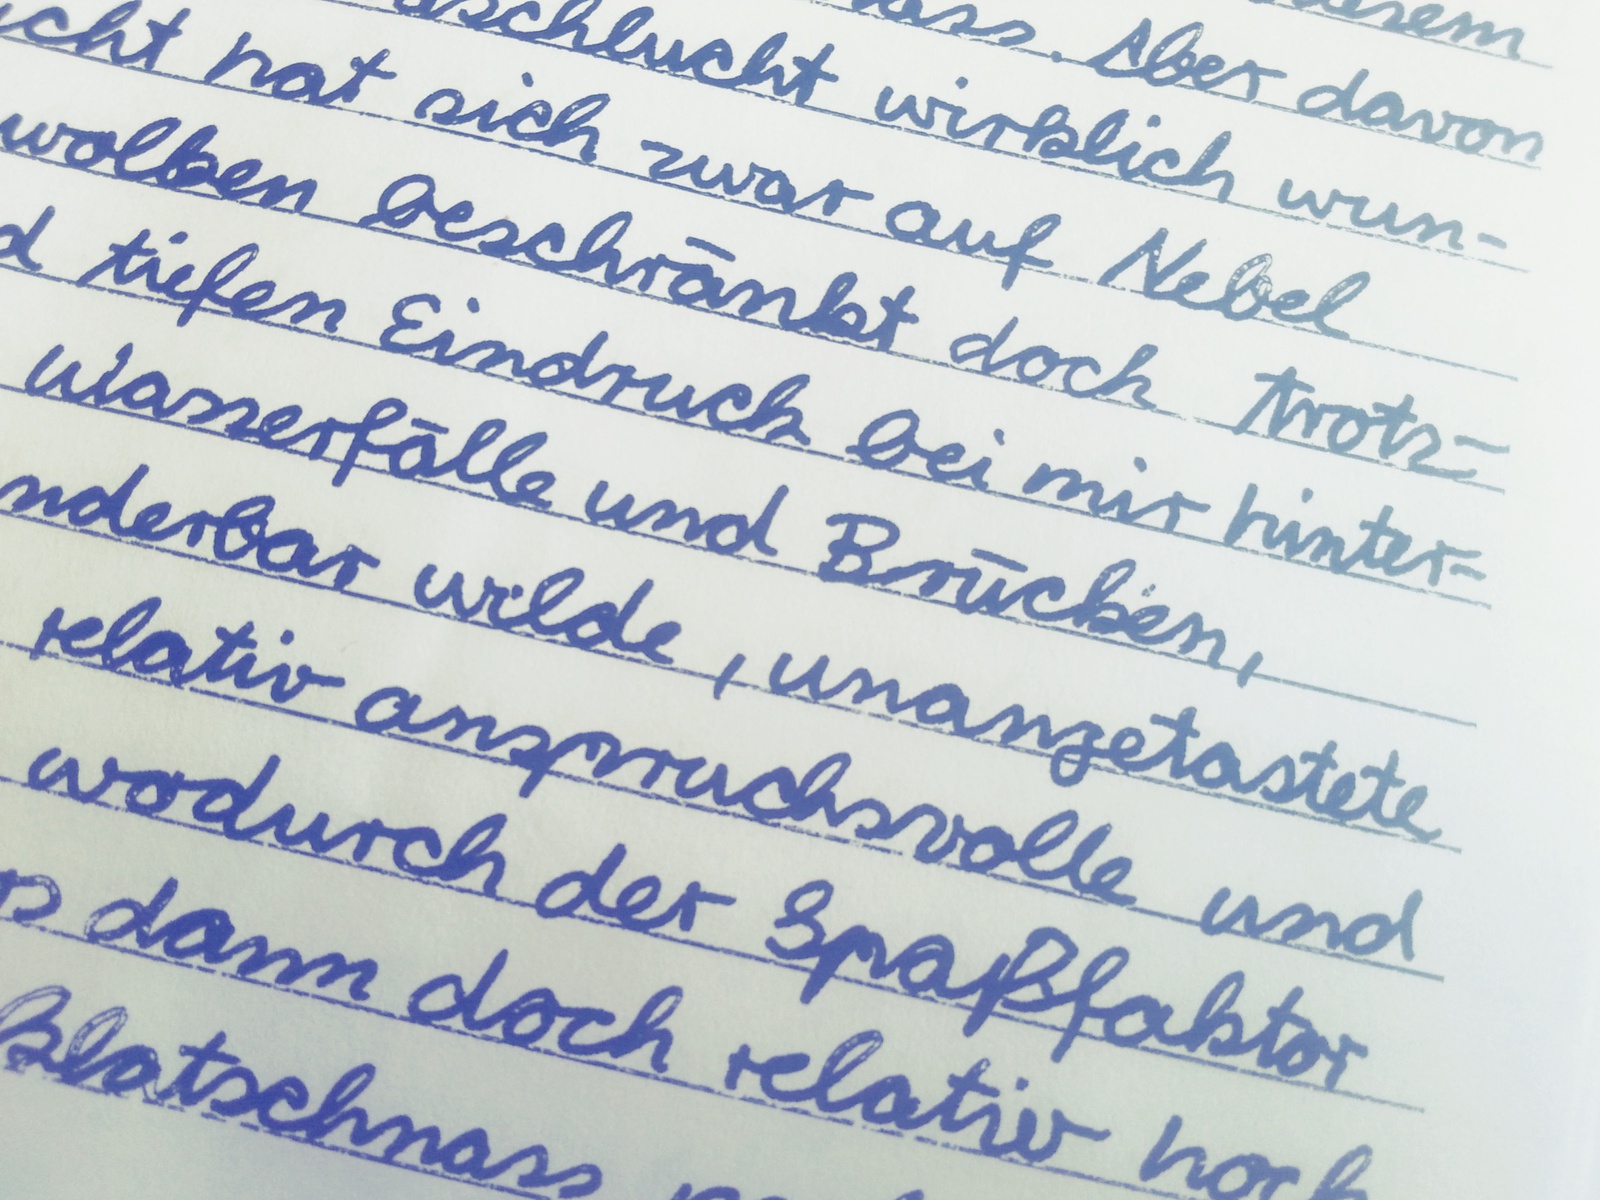 Aber davon
schlucht wirklich wun-
icht hat sich zwar auf Nebel
wolken beschränkt doch trotz-
d tiefen Eindruck bei mir hinter-
Wasserfälle und Brücken,
nderbar wilde, unangetastete
relativ anspruchsvolle und
wodurch der Spaßfaktor
dann doch relativ hoch
Klatschnass